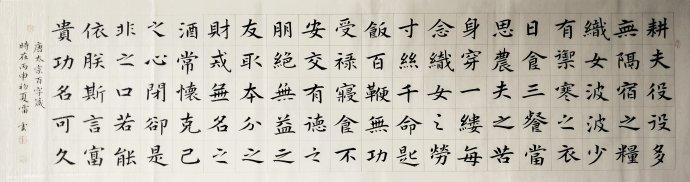 耕夫役役多
無隔宿之糧
織女波波少
有禦寒之衣
日食三餐當
思農夫之苦
身穿一縷每
念織女之勞
寸絲千命匙
飯百鞭無功
受祿寢食不
安交有德之
朋絕無益之
友取本分之
財戒無名之
酒常懷克己
之心閉卻是
非之口若能
依朕斯言富
貴功名可久
唐太宗百字箴
時在丙申初夏雷